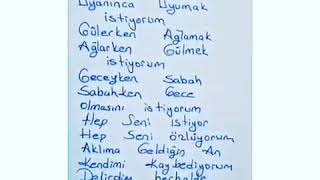 Uyanınca Uyumak
istiyorum
Gülerken Ağlamak
Ağlarken Gülmek
istiyorum
Geceyken Sabah
Sabahken Gece
olmasını istiyorum
Hep Seni istiyor
Hep Seni özlüyorum
Aklıma Geldiğin An
Kendimi Kaybediyorum
Delirdim herhalde